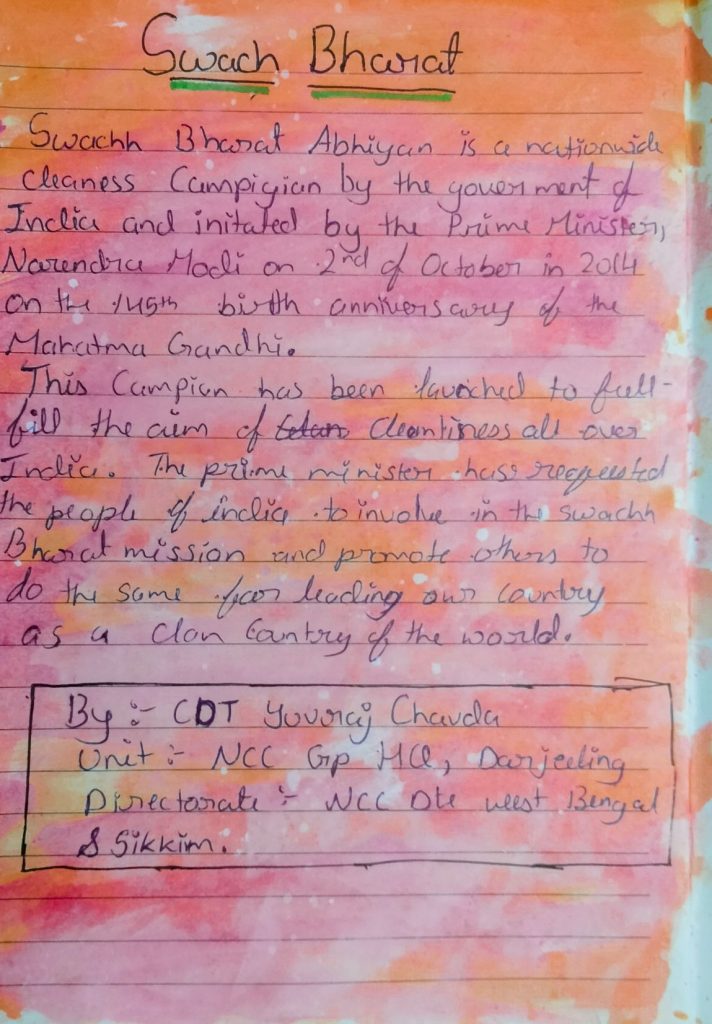 Swach Bharat
Swachh Bharat Abhiyan is a nationwide
cleaness Campigian by the goverment of
India and initated by the Prime Minister,
Narendra Modi on 2nd of October in 2014
on the 145th birth anniversary of the
Mahatma Gandhi.
This Campian has been launched to full-
fill the aim of Cleantiness all over
India. The prime minister has requested
the people of india to involve in the swachh
Bharat mission and promote others to
do the same for leading our country
as a clan Country of the world.
By :- CDT Yovraj Chavda
Unit :- NCC Gp HQ, Darjeeling
Directorate :- NCC Dte west Bengal
& Sikkim.